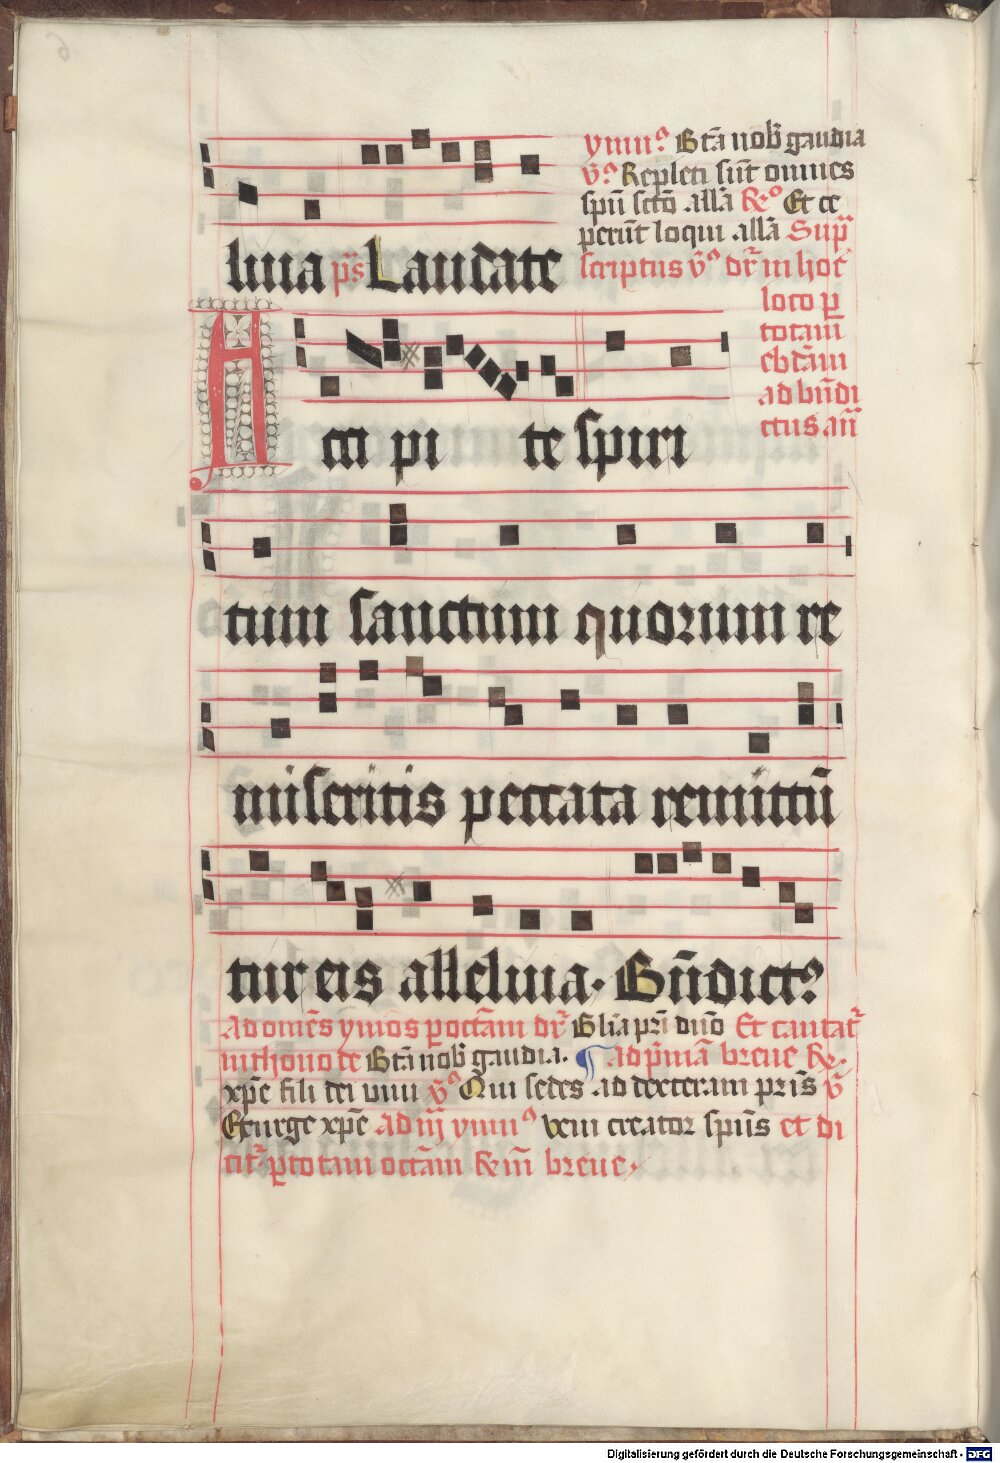 ymn⁹ Btā nob̄ gaudia
v̄⁹ Repleti sūt omnes
spū sctō allā R⁹ Et ce
perūt loqui allā Sup̄
scriptus v̄⁹ dr̄ in hoc
luia ps̄ Laudate
loco p
totam
ebdām
ad bn̄di
ctus an̄
Acci pi te spiri
tum sanctum quorum re
miseritis peccata remittū
tur eis alleluia. Bn̄dict⁹
Ad omēs ymos p octām dr̄ Glia pri dnō Et cantat̄
in thono de Btā nob̄ gaudia. ¶ ad pmā breue R.
xpē fili dei viui v̄⁹ Qui sedes ad dexteram pris̄ v̄
Exurge xpē Ad iij ymn⁹ veni creator spūs et di
cit̄ p totam octām R m̄ breue.
Digitalisierung gefördert durch die Deutsche Forschungsgemeinschaft - DFG